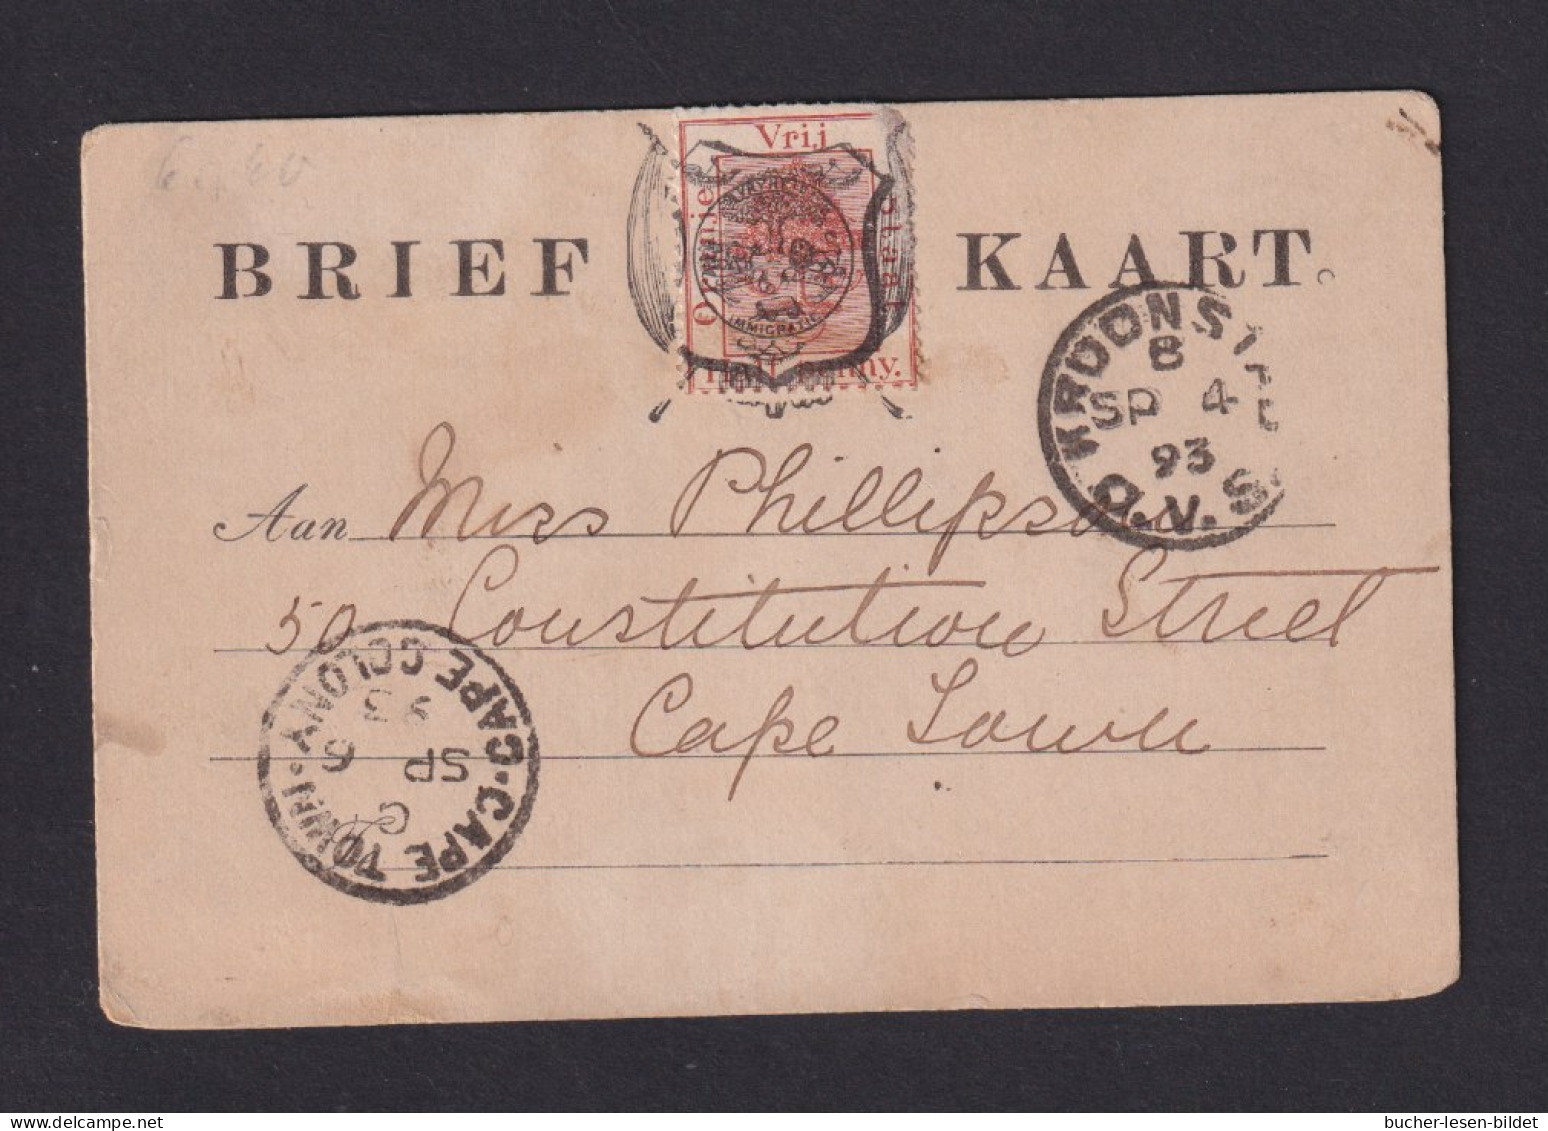 BRIEF KAART.
Vrij
Oranje
Staat
penny.
IMMIGRATIE
KROONSTAD
B
SP 4
93
O.V.S.
Aan Miss Phillipson
50 Constitution Street
Cape Town
CAPE TOWN · CAPE COLONY
C
SP 5
93
bucher-lesen-bildet